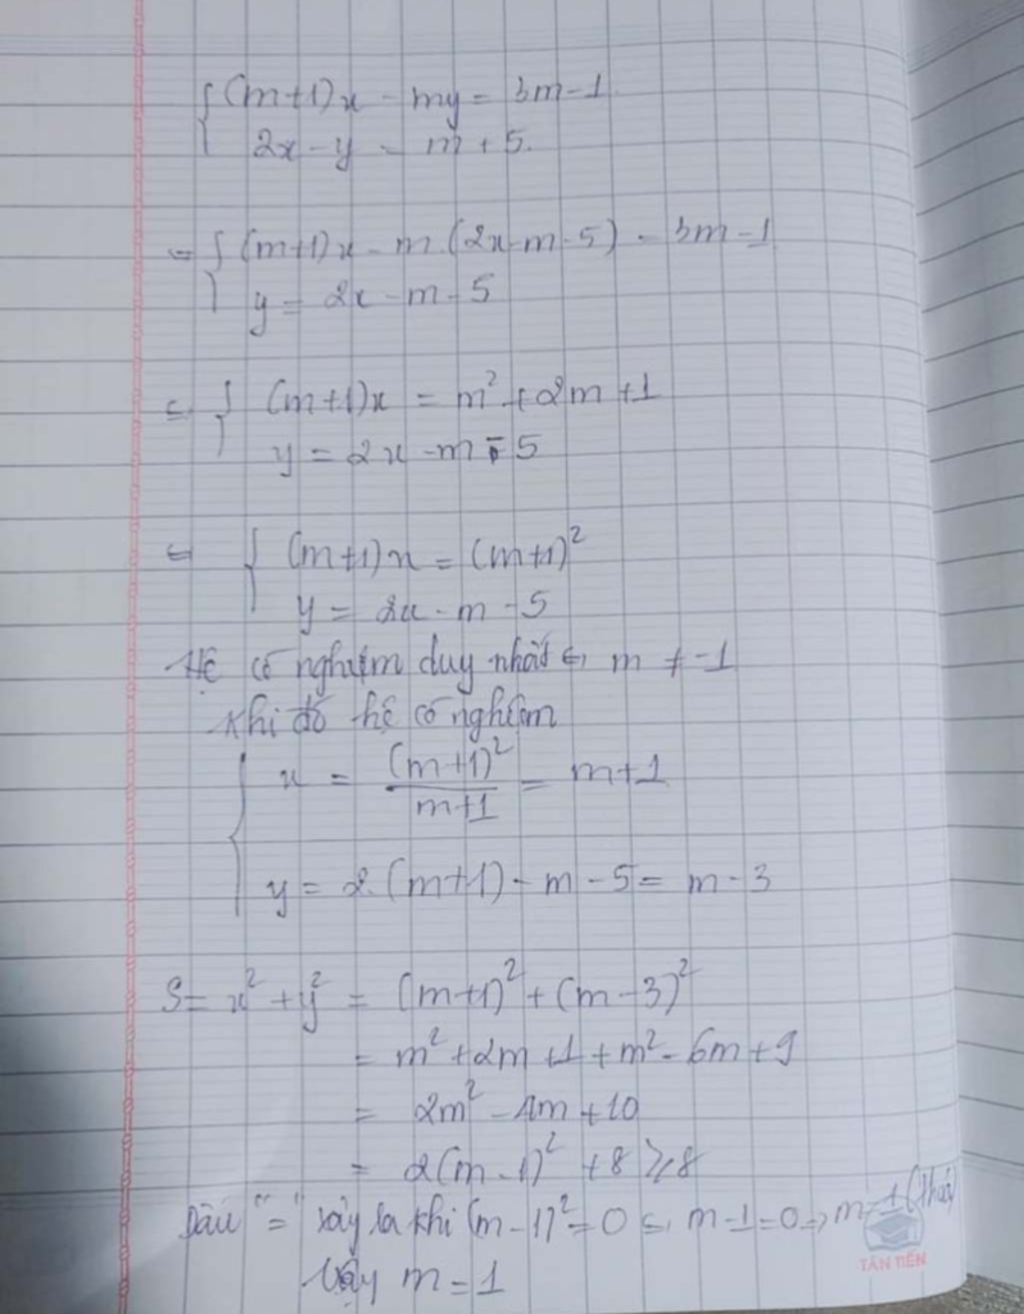 { (m+1)x - my = 3m-1
2x - y = m + 5.
⇔ { (m+1)x - m.(2x-m-5) = 3m-1
y = 2x - m - 5
⇔ { (m+1)x = m² + 2m + 1
y = 2x - m - 5
⇔ { (m+1)x = (m+1)²
y = 2x - m - 5
Hệ có nghiệm duy nhất ⇔ m ≠ -1
Khi đó hệ có nghiệm
{ x = (m+1)²/(m+1) = m+1
y = 2.(m+1) - m - 5 = m - 3
S = x² + y² = (m+1)² + (m-3)²
= m² + 2m + 1 + m² - 6m + 9
= 2m² - 4m + 10
= 2(m-1)² + 8 ≥ 8
Dấu "=" xảy ra khi (m-1)² = 0 ⇔ m-1 = 0 ⇒ m = 1 (
Vậy m = 1
TÂN TIẾN